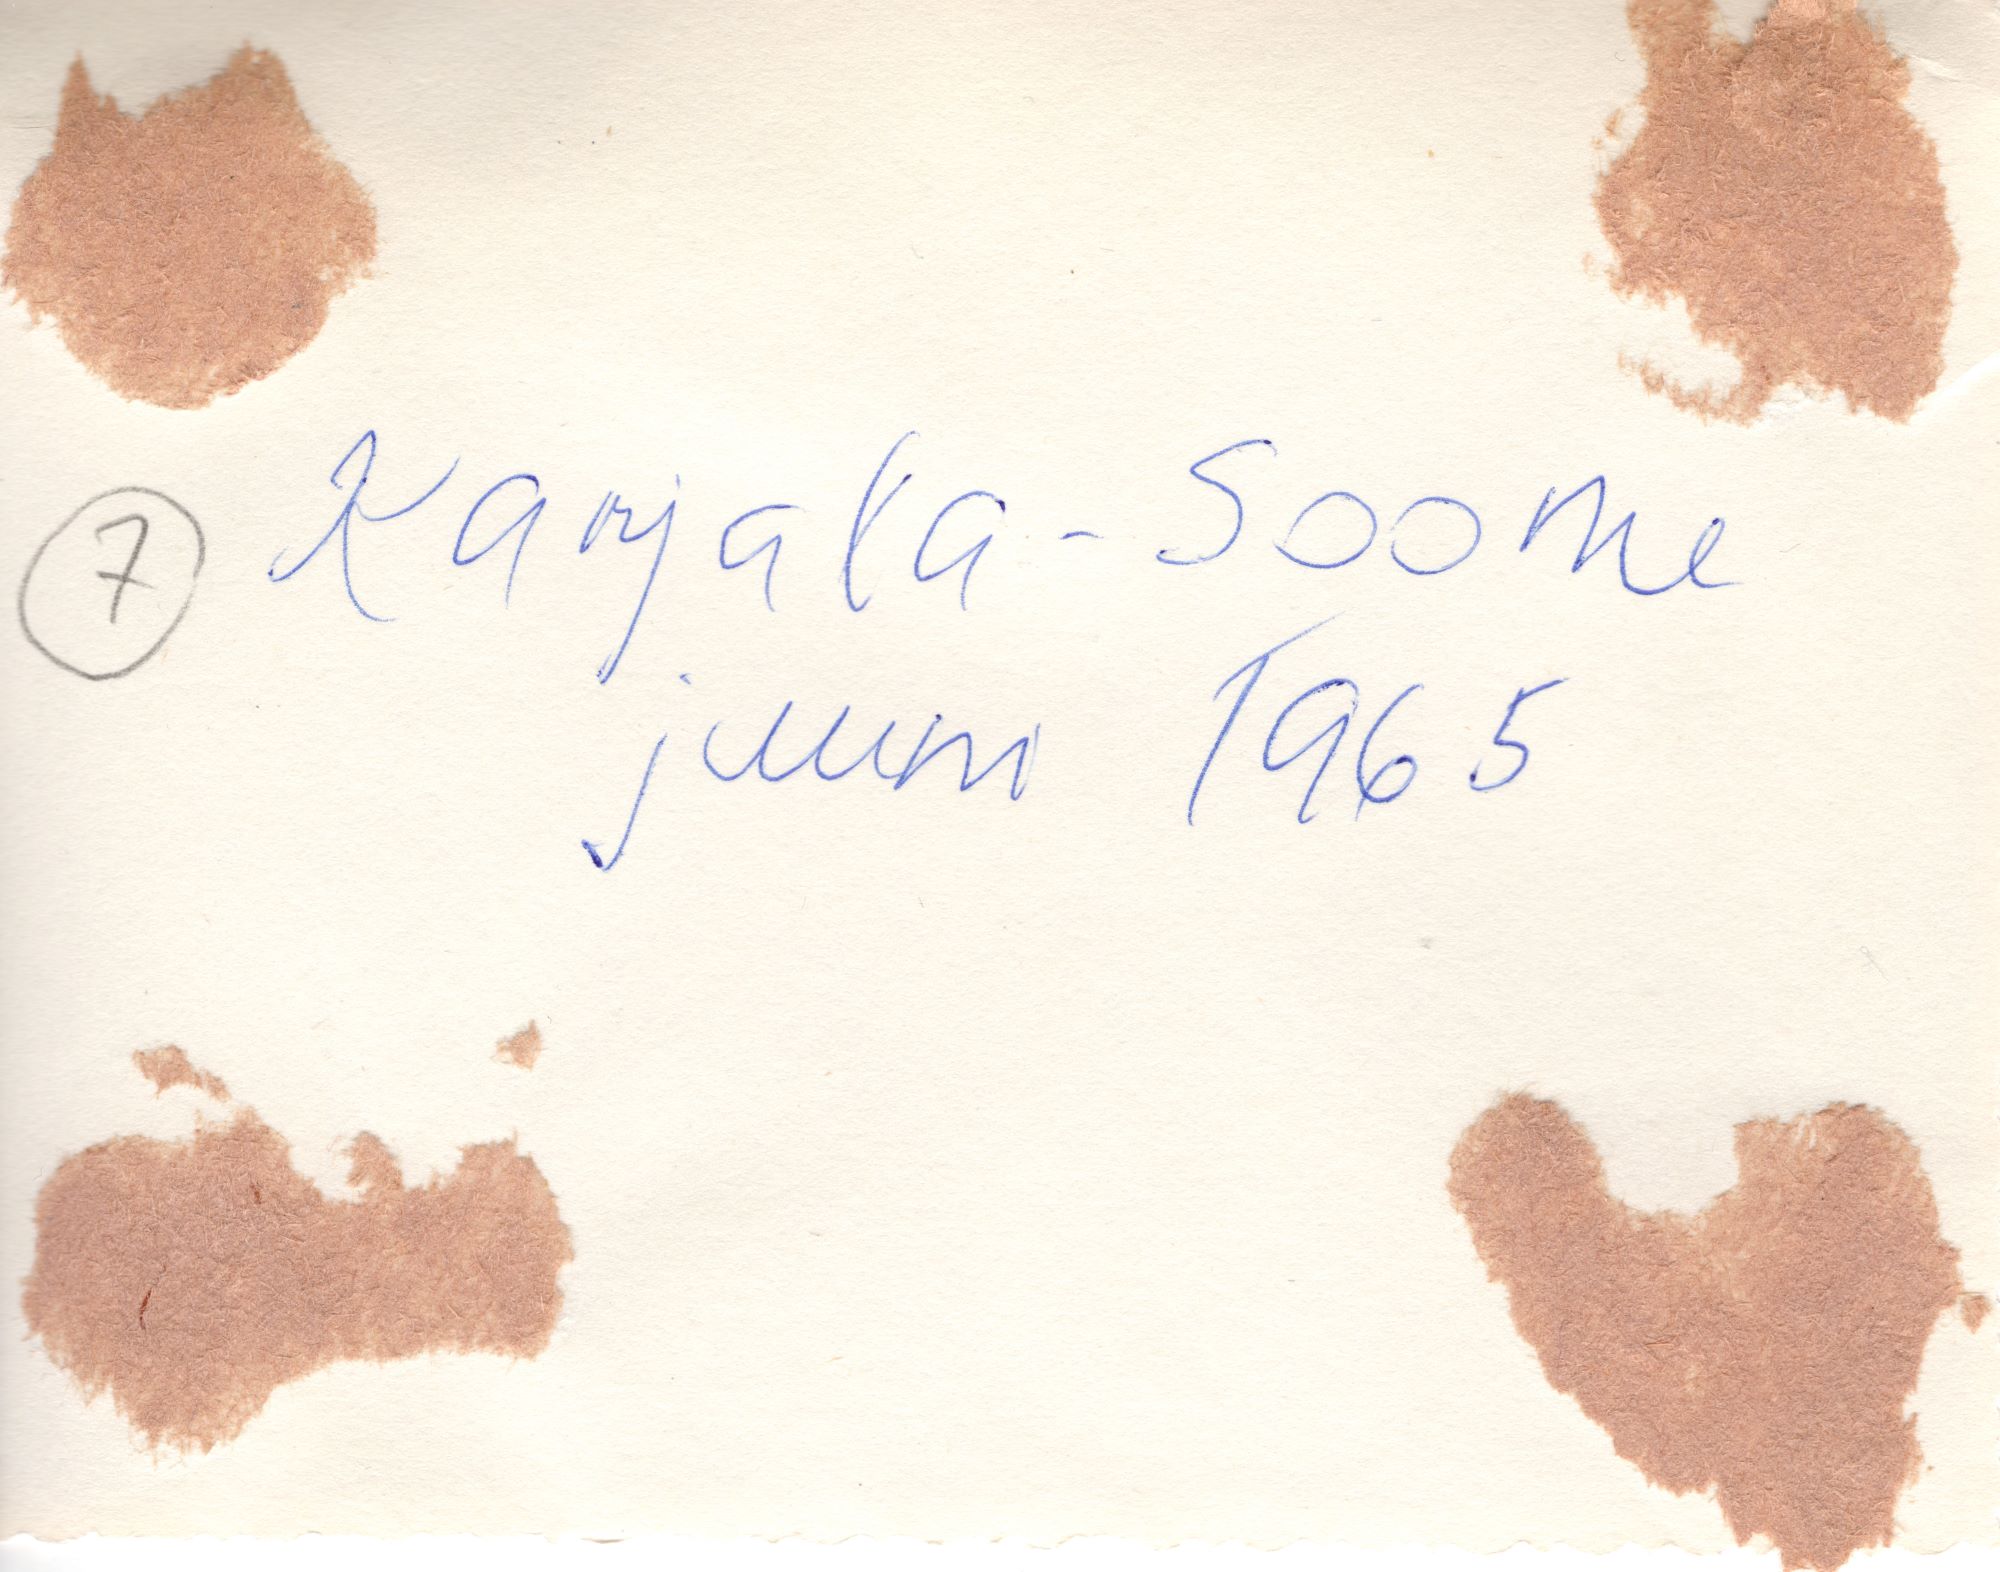 7 Karjala-Soome
juuni 1965